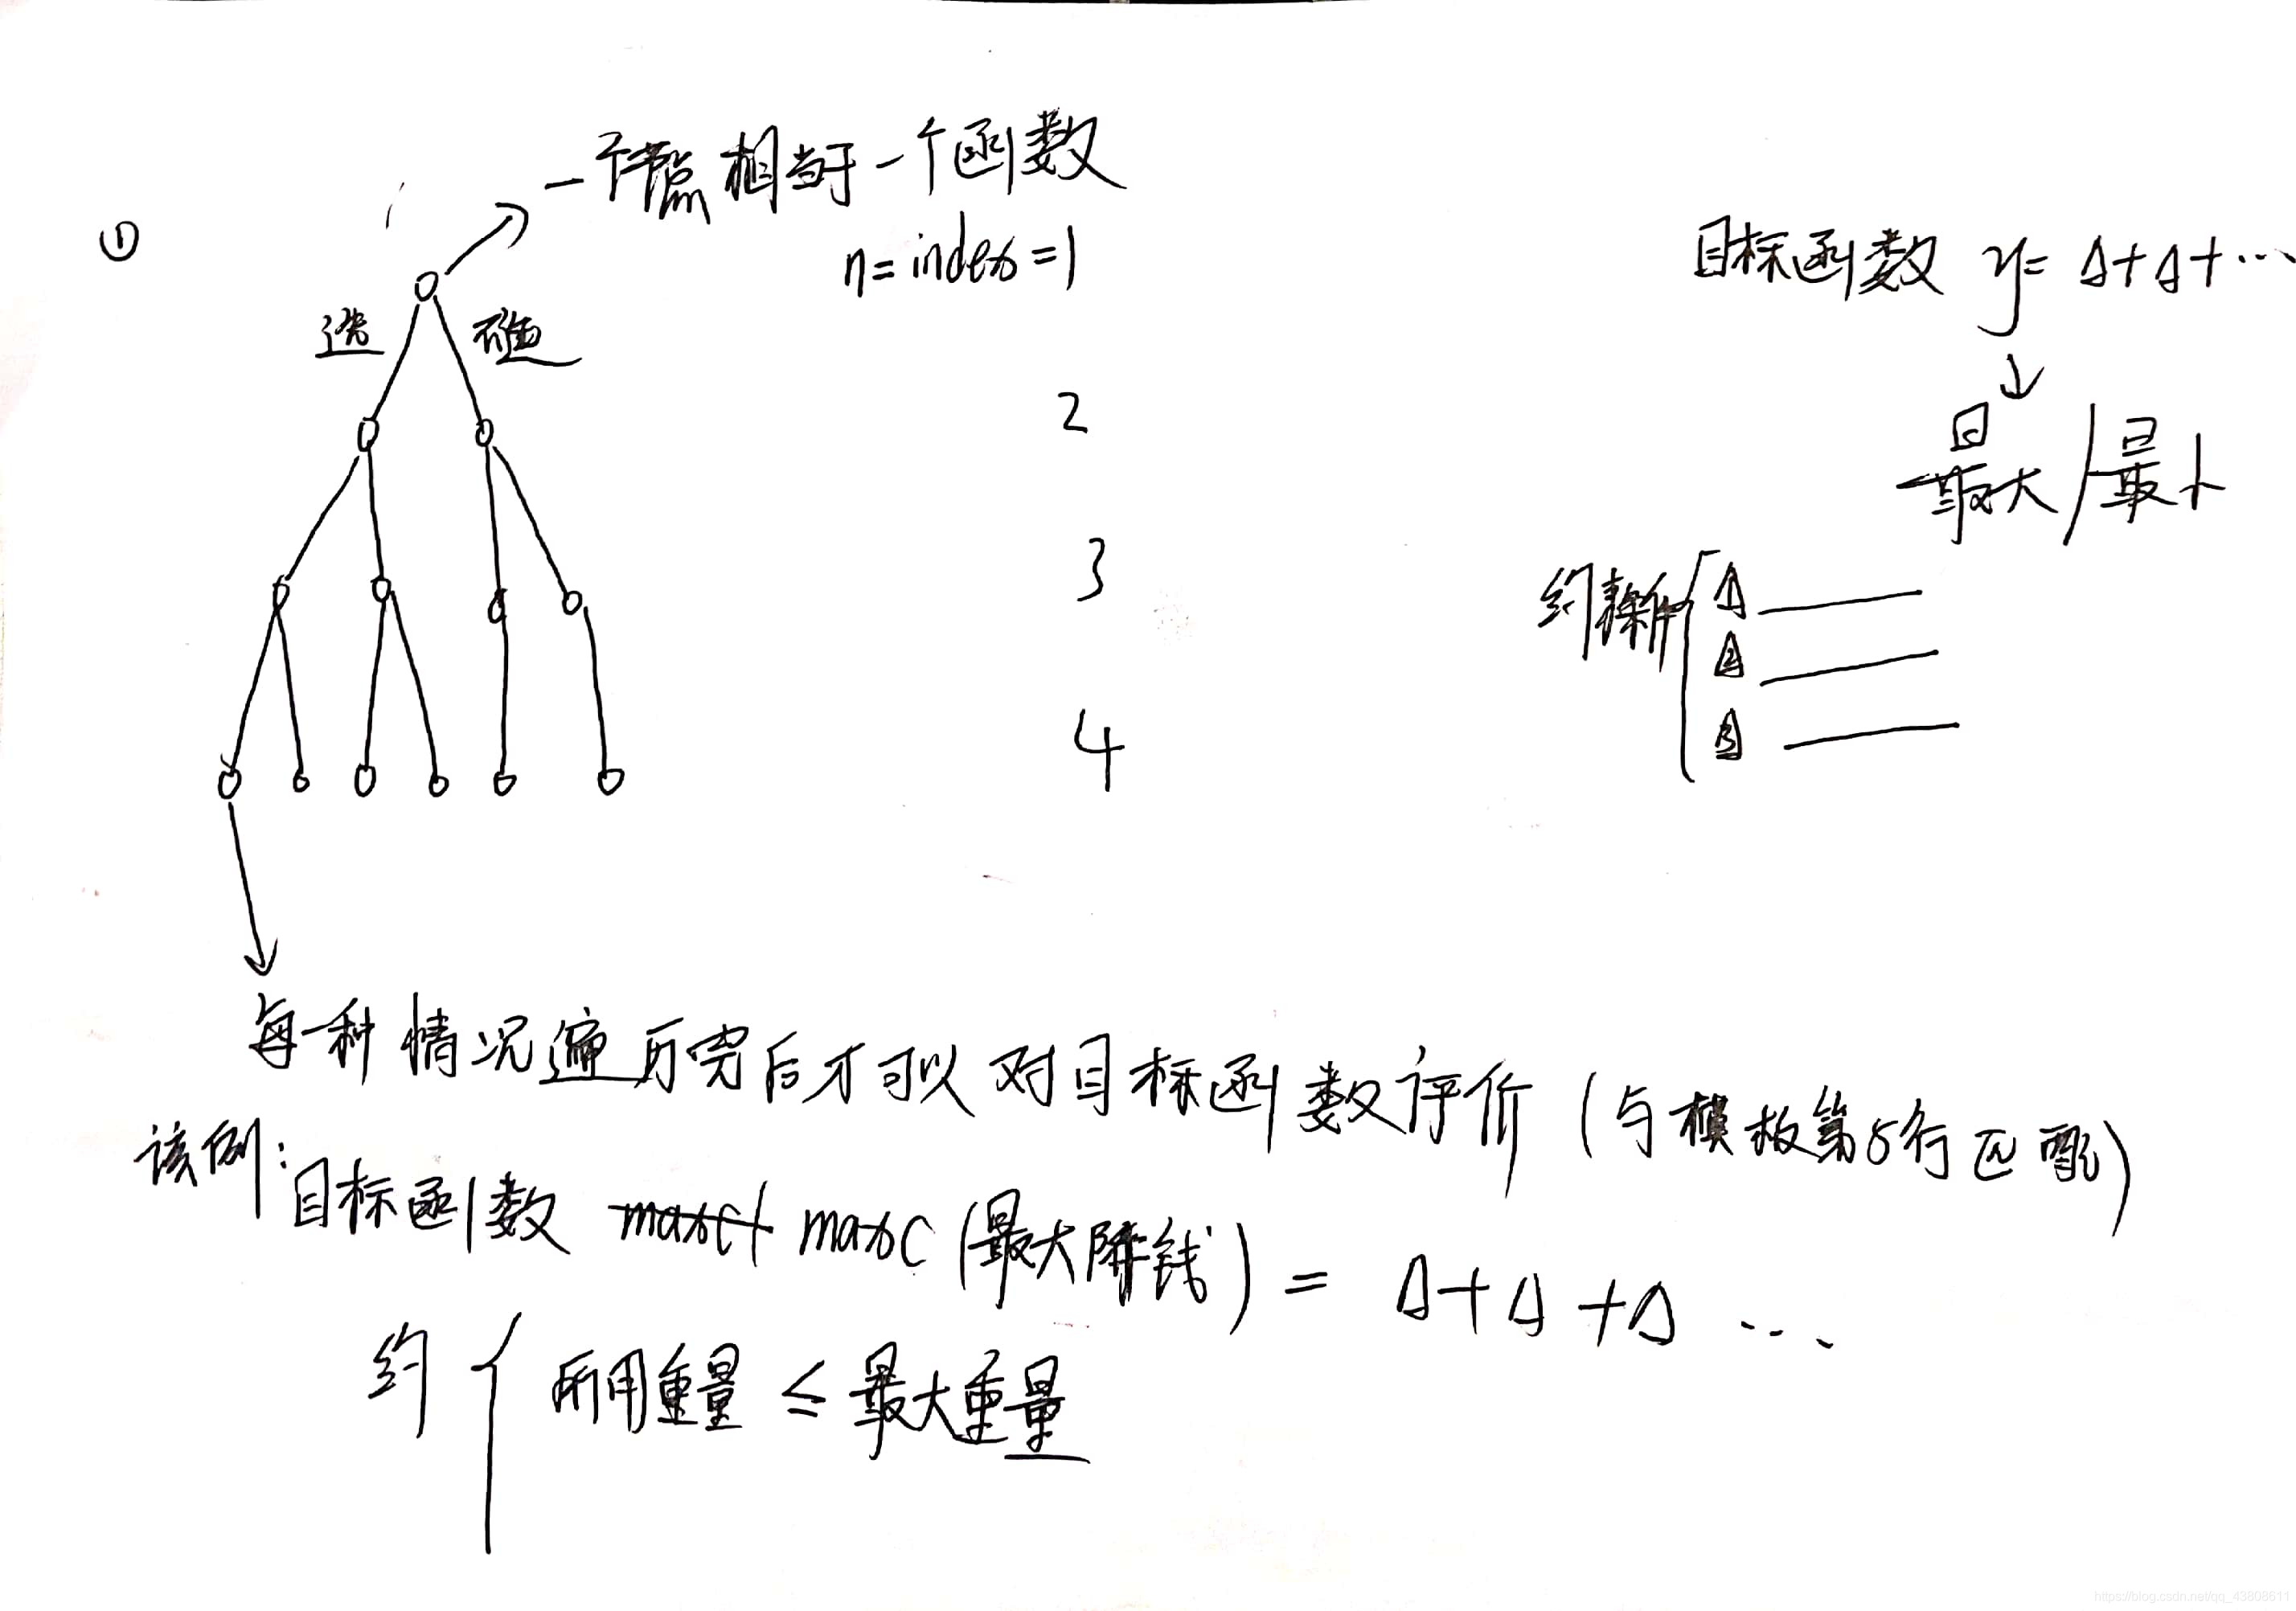 ①
一个节点相当于一个函数
n=index=1
选 不选
2
3
4
目标函数 y= Δ+Δ+…
↓
最大/最小
约束条件 { ① —
② —
③ —
每一种情况遍历完后才可以对目标函数评价(与模板第5行匹配)
该例:
目标函数 maxc(最大 钱) = Δ+Δ+Δ ...
约 { 所用重量 ≤ 最大重量
https://blog.csdn.net/qq_43808611